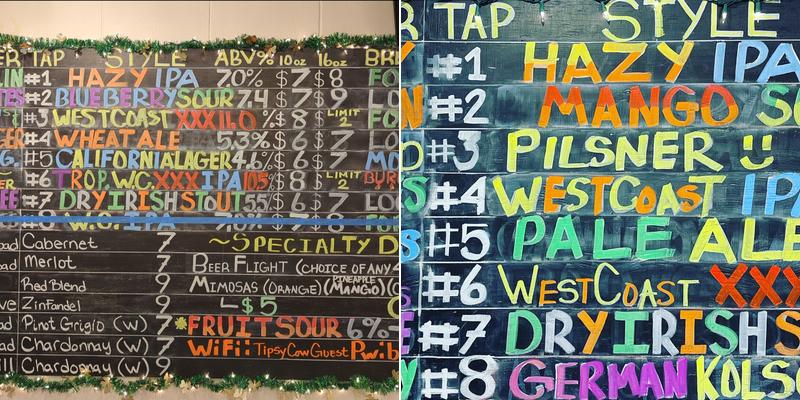 ER TAP STYLE ABV% 10oz 16oz BRE
LIN #1 HAZY IPA 7.0% $7 $8 FO
TES #2 BLUEBERRY SOUR 7.4 $7 $9 LO
#3 WESTCOAST XXX 11.0% $8 LIMIT 2 FO
ER #4 WHEAT ALE 5.3% $6 $7 LO
G. #5 CALIFORNIA LAGER 4.6% $6 $7 MO
#6 TROP. W.C. XXX IPA 10.5% $8 LIMIT 2 BUR
EE #7 DRY IRISH STOUT 5.5% $6 $7 LO
#8 W.C. IPA 7.0% $7 $8 FO
oad Cabernet 7
oad Merlot 7
Red Blend 9
ve Zinfandel 9
ad Pinot Grigio (W) 7
ad Chardonnay (W) 7
ill Chardonnay (W) 9
~SPECIALTY D
BEER FLIGHT (CHOICE OF ANY
MIMOSAS (ORANGE) (PINEAPPLE MANGO) (C
$5
*FRUIT SOUR 6%
WiFi: TipsyCowGuest
R TAP STYLE
#1 HAZY IPA
N #2 MANGO SO
D #3 PILSNER
S #4 WESTCOAST IPA
S #5 PALE ALE
#6 WESTCOAST XXX
#7 DRY IRISH S
#8 GERMAN KOLS